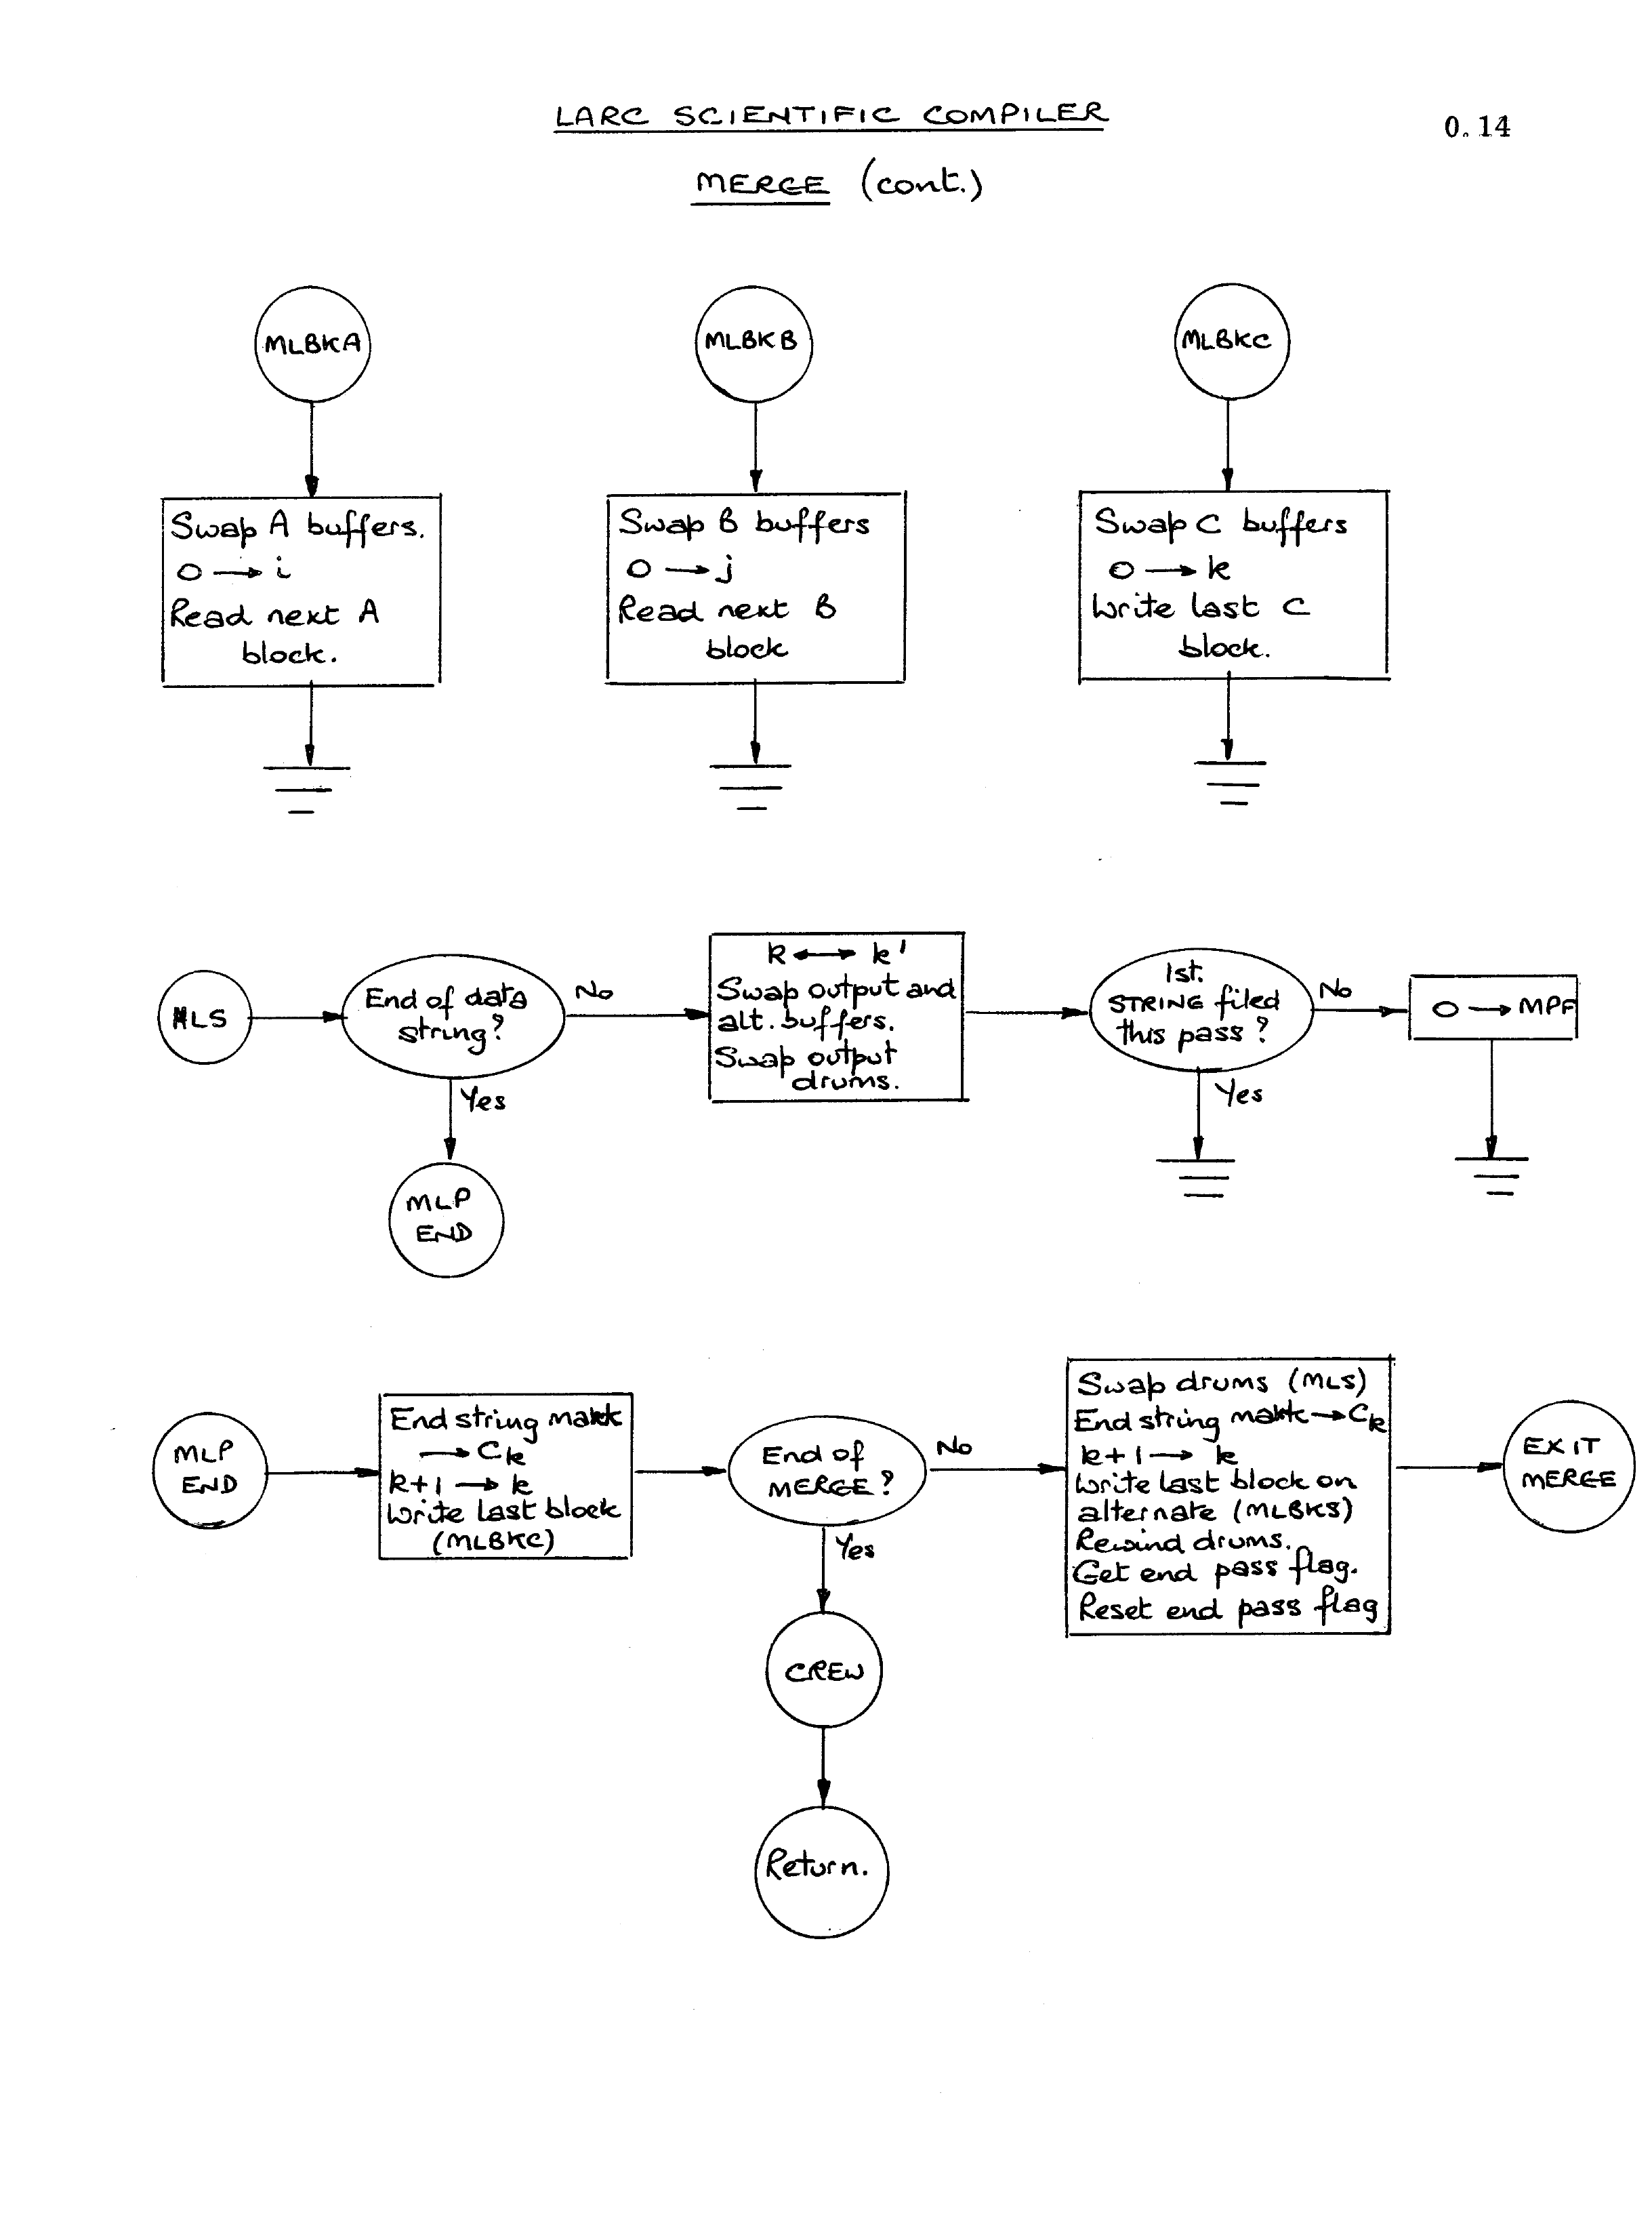 LARC SCIENTIFIC COMPILER
0.14
MERGE (cont.)
MLBKA
MLBKB
MLBKC
Swap A buffers.
0 → i
Read next A
block.
Swap B buffers
0 → j
Read next B
block
Swap C buffers
0 → k
Write last C
block.
MLS
End of data
string?
No
Yes
MLP
END
k ↔ k'
Swap output and
alt. buffers.
Swap output
drums.
1st.
STRING filed
this pass?
No
Yes
0 → MPF
MLP
END
End string mark
→ Ck
k+1 → k
Write last block
(MLBKC)
End of
MERGE?
No
Yes
CREW
Return.
Swap drums (MLS)
End string mark → Ck
k+1 → k
Write last block on
alternate (MLBKS)
Rewind drums.
Get end pass flag.
Reset end pass flag
EXIT
MERGE